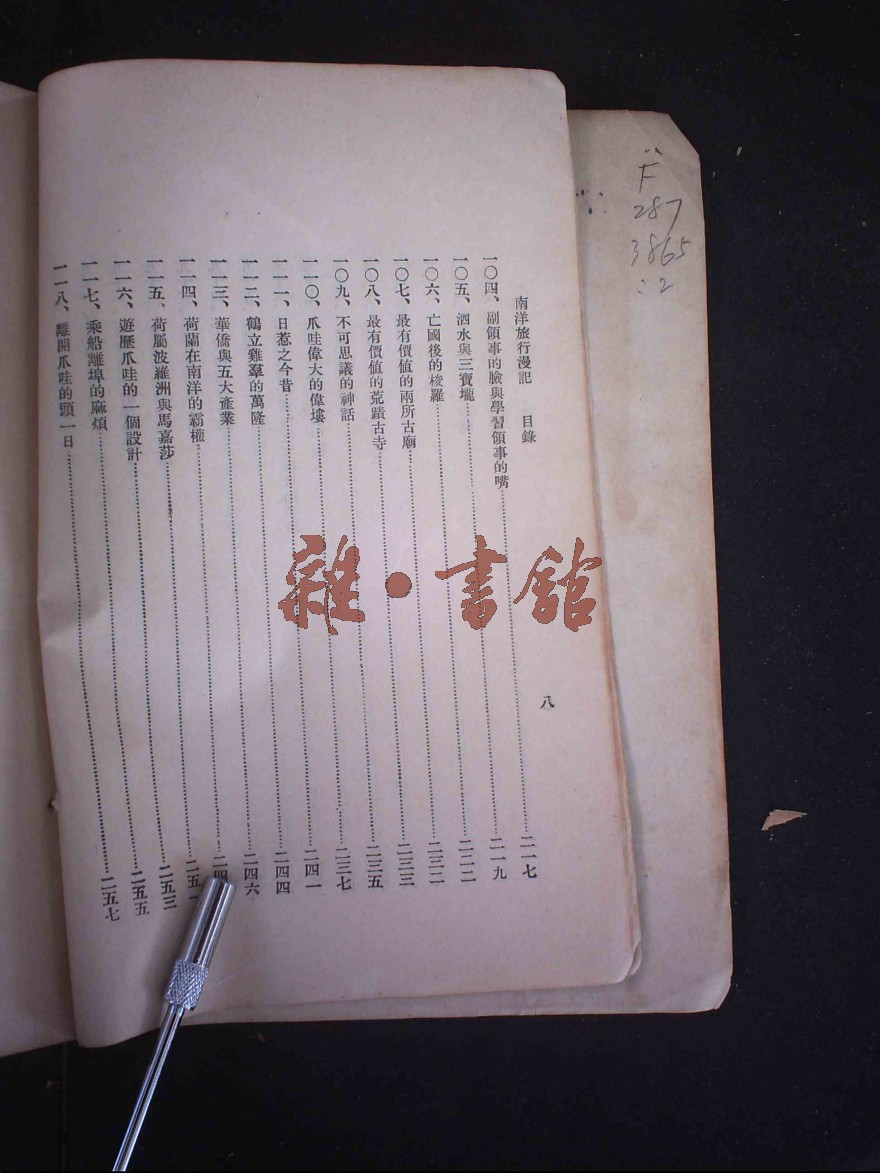 南洋旅行漫記　目錄
一〇四、副領事的臉與學習領事的嘴……二一七
一〇五、泗水與三寶壠……二一九
一〇六、亡國後的梭羅……二二二
一〇七、最有價值的兩所古廟……二三二
一〇八、最有價值的荒蹟古寺……二三三
一〇九、不可思議的神話……二三五
一一〇、爪哇偉大的偉塿……二三七
一一一、日惹之今昔……二四一
一一二、鶴立雞羣的萬隆……二四四
一一三、華僑與五大產業……二四六
一一四、荷蘭在南洋的霸權……二四
一一五、荷屬波羅洲與馬嘉莎……二五一
一一六、遊歷爪哇的一個設計……二五三
一一七、乘船離埠的麻煩……二五五
一一八、離開爪哇的頭一日……二五七
八
F
287
3865
:2
雜·書館